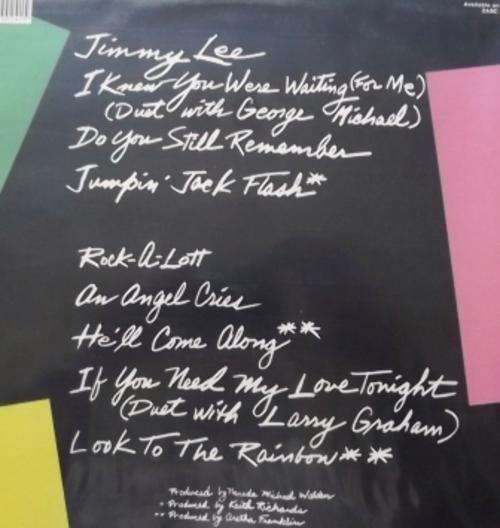 Available on
CASS
Jimmy Lee
I Knew You Were Waiting (For Me)
(Duet with George Michael)
Do You Still Remember
Jumpin' Jack Flash*
Rock-A-Lott
An Angel Cries
He'll Come Along**
If You Need My Love Tonight
(Duet with Larry Graham)
Look To The Rainbow**
Produced by Narada Michael Walden
* Produced by Keith Richards
** Produced by Aretha Franklin